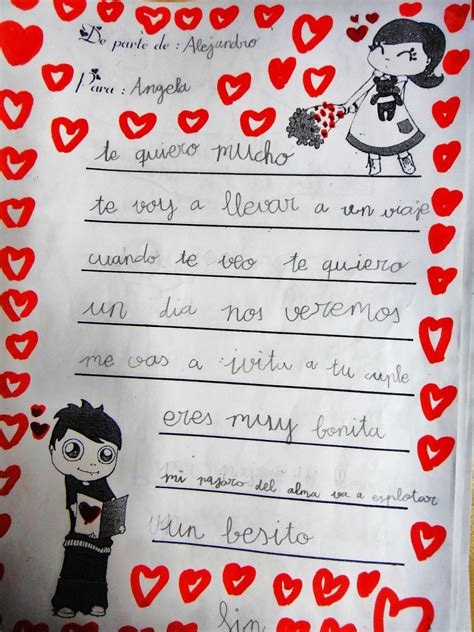 De parte de : Alejandro
Para : Angela
te quiero mucho
te voy a llevar a un viaje
cuando te veo te quiero
un dia nos veremos
me vas a ivita a tu cuple
eres muy bonita
mi pajaro del alma va a esplotar
un besito